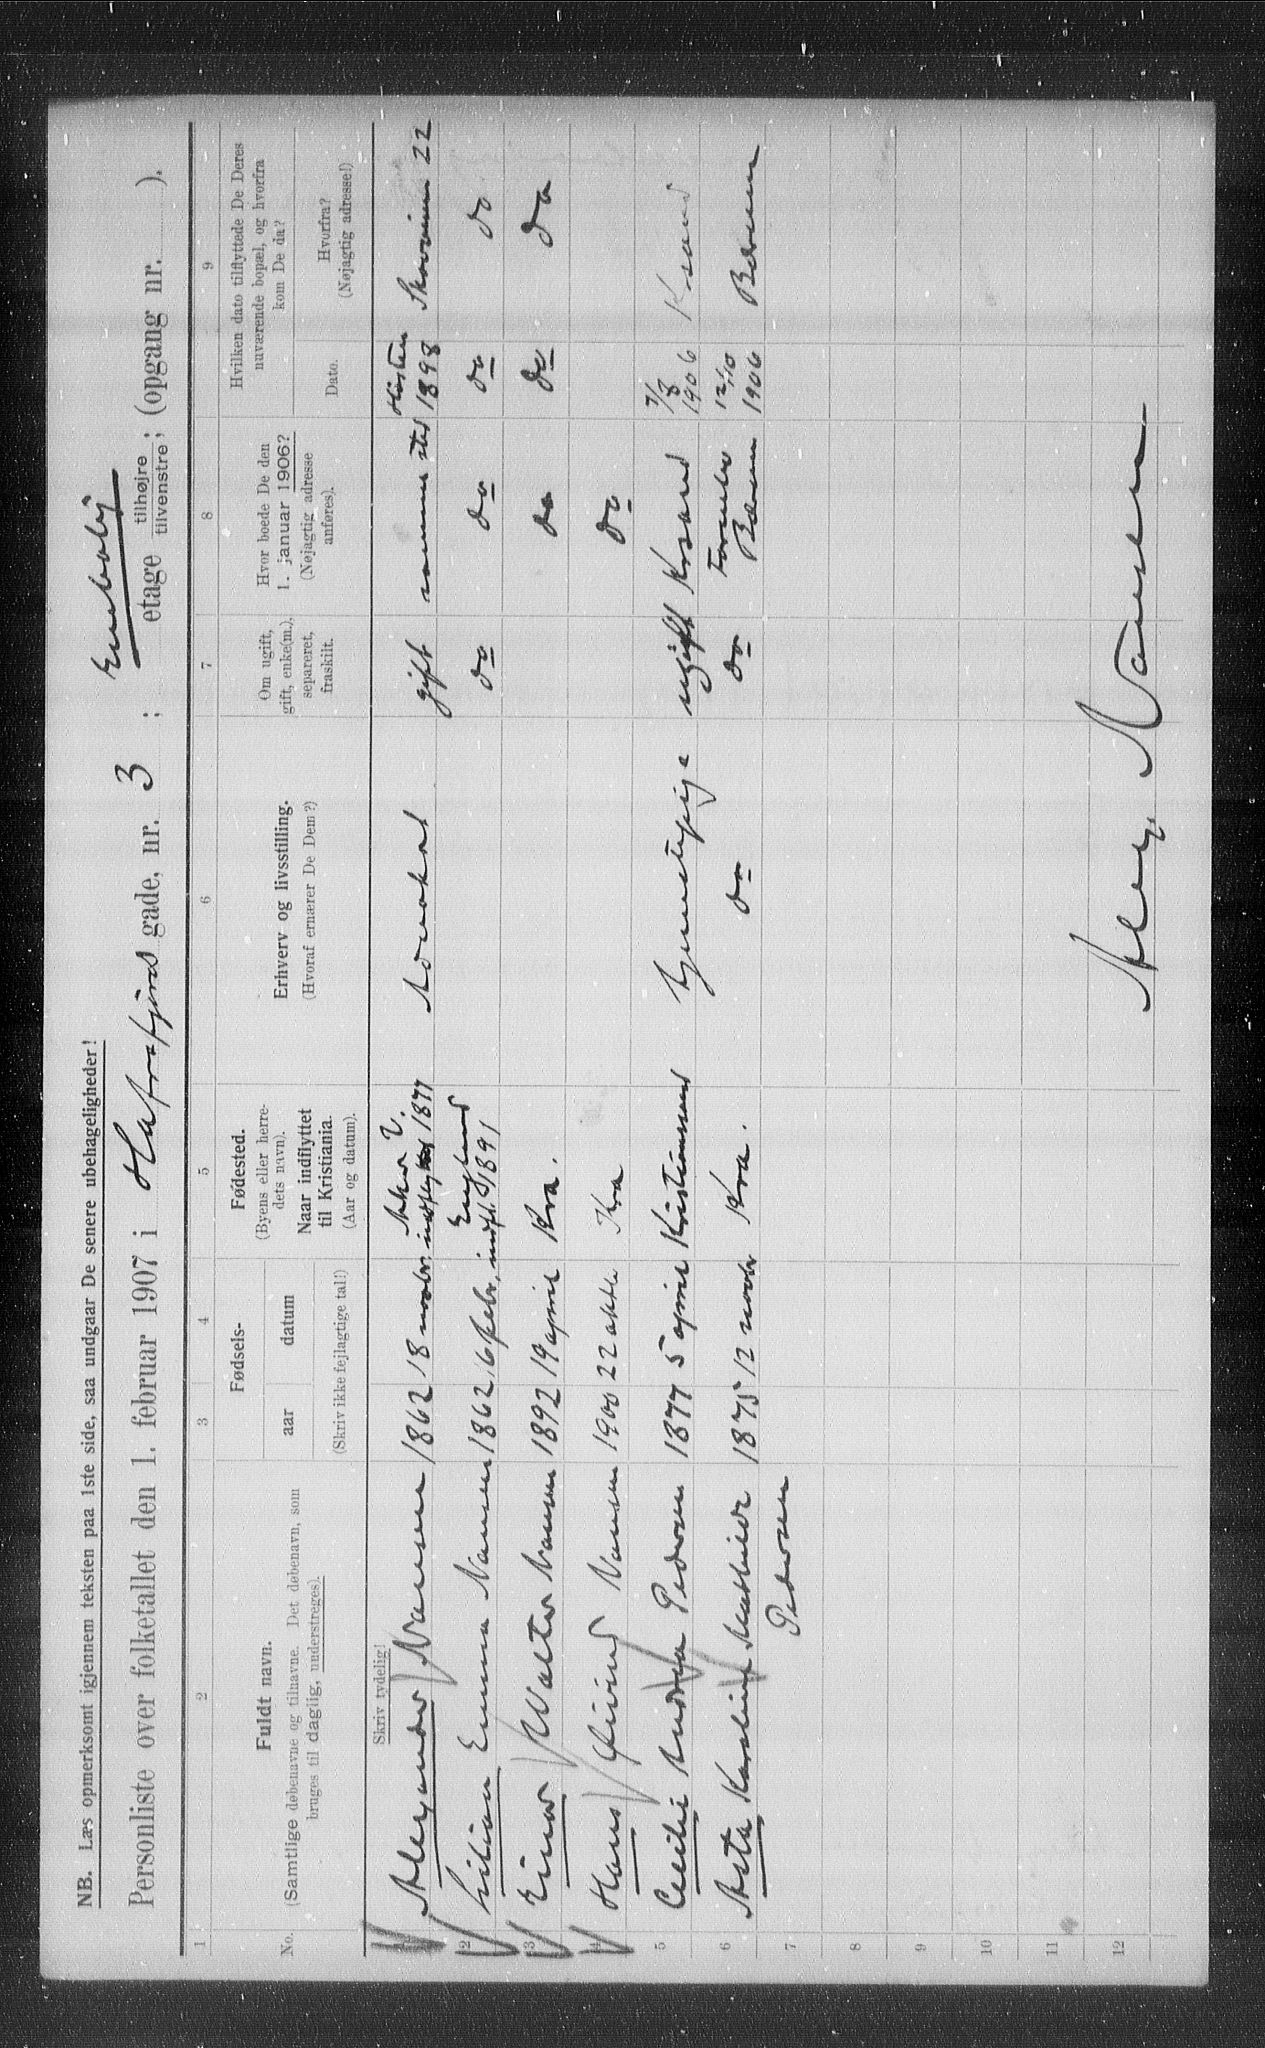 NB. Læs opmerksomt igjennem teksten paa 1ste side, saa undgaar De senere ubehageligheder!
Personliste over folketallet den 1. februar 1907 i Hafrsfjords gade, nr. 3 ; Enebolig etage tilhøjre tilvenstre; (opgang nr. ).
1 2 3 4 5 6 7 8 9
No. Fuldt navn. (Samtlige døbenavne og tilnavne. Det døbenavn, som bruges til daglig, understreges).
Fødsels- aar datum (Skriv ikke fejlagtige tal!)
Fødested. (Byens eller herredets navn). Naar indflyttet til Kristiania. (Aar og datum).
Erhverv og livsstilling. (Hvoraf ernærer De Dem?)
Om ugift, gift, enke(m.), separeret, fraskilt.
Hvor boede De den 1. januar 1906? (Nøjagtig adresse anføres).
Hvilken dato tilflyttede De Deres nuværende bopæl, og hvorfra kom De da?
Dato. Hvorfra? (Nøjagtig adresse!)
Skriv tydelig!
1 Alexander Nansen 1862 18 novbr. Aker V. indflyttet 1877 Advokat gift samme sted Høsten 1898 22
2 Lilian Emma Nansen 1862 6 febr. England indfl. 1891 do do do do
3 Einar Walter Nansen 1892 19 april Kra. do do do
4 Hans Øivind Nansen 1900 22 oktbr Kra do
5 Cecilie Andrea Pedersen 1877 5 april Kristianssand tjenestepige ugift Krsand 7/8 1906 Krsand
6 Asta Karoline Mathilde Pedersen 1875 12 novbr Kra. do do Fornebo Bærum 12/10 1906 Bærum
7
8
9
10
11
12
Alex. Nansen